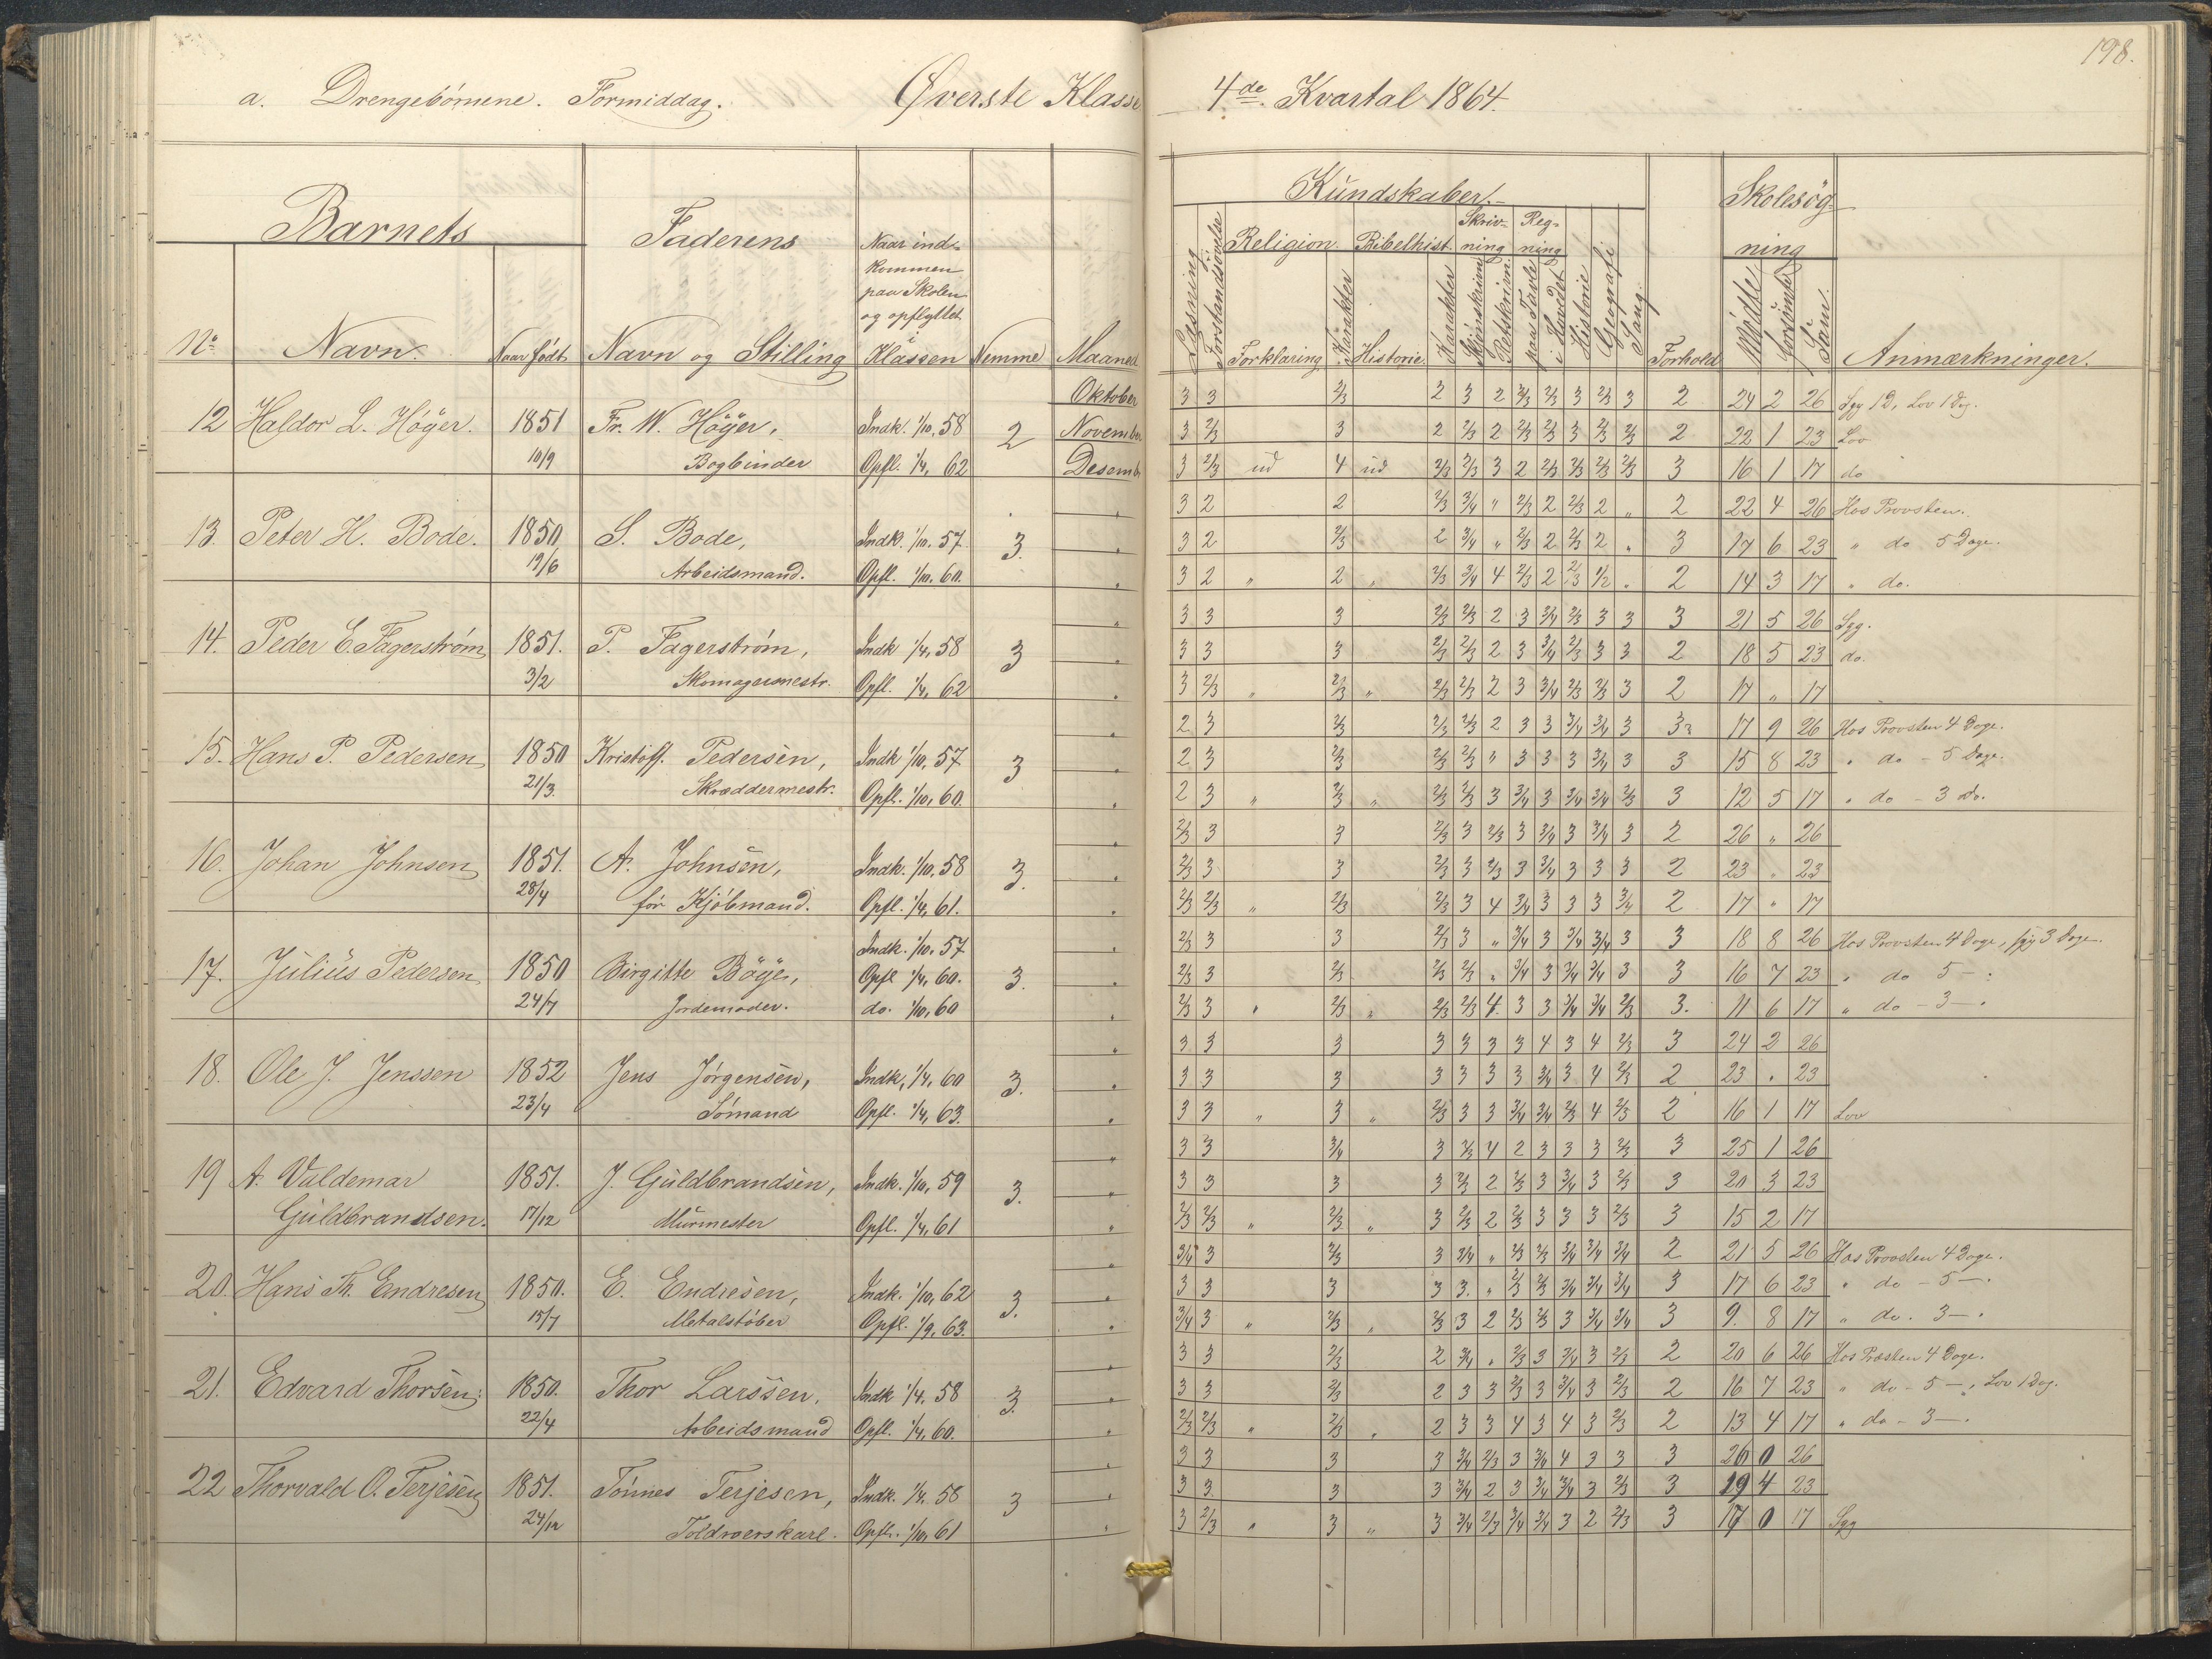 198.
a. Drengebörnene. Formiddag. Øverste Klasse 4de Kvartal 1864.
Barnets Faderens Naar ind- kommen paa Skolen og opflyttet i Klassen Nemme Maaned
No Navn. Naar født Navn og Stilling
Kundskaber. Skolesøg-
ning
Læsning Forstandsøvelse Religion. Bibelhist. Skriv- ning Reg- ning
Forklaring Karakter Historie Karakter Skjønskrivn. Retskrivn. paa Tavle i Hovedet Historie Geografi Sang. Forhold Mødte Forsømte Sum. Anmærkninger.
Oktober 3 3 2/3 2 3 2 3/4 2/3 3 2/3 3 2 24 2 26 Syg 1 D, Lov 1 Dag.
12 Haldor L. Höÿer. 1851 Fr. W. Höÿer, Indk. 1/10, 58 2 November 3 2/3 3 2 2/3 2 2/3 2/3 3 2/3 2/3 2 22 1 23 Lov
10/9 Bogbinder Opfl. 1/4, 62 Desemb 3 2/3 ud 4 ud 2/3 2/3 3 2 2/3 2/3 2/3 2/3 3 16 1 17 do
3 2 2 2/3 3/4 " 2/3 2 2/3 2 " 2 22 4 26 Hos Provsten.
13. Peter H. Bode. 1850 S. Bode, Indk. 1/10. 57 3. " 3 2 2/3 2 3/4 " 2/3 2 2/3 2 " 3 17 6 23 " do 5 Dage.
19/6 Arbeidsmand. Opfl. 1/10. 60. " 3 2 " 2 " 2/3 3/4 4 2/3 2 2/3 1/2 " 2 14 3 17 " do.
" 3 3 3 2/3 2/3 2 3 3/4 2/3 3 3 3 21 5 26 Syg.
14. Peder E. Fagerstrøm 1851. P. Fagerstrøm, Indk 1/4, 58 3 " 3 3 3 2/3 2/3 2 3 3/4 2/3 3 3 2 18 5 23 do.
3/2 Skomagermestr. Opfl. 1/4, 62 " 3 2/3 " 2/3 " 2/3 2/3 2 3 3/4 2/3 2/3 3 2 17 " 17
" 2 3 2/3 2/3 2/3 2 3 3 3/4 3/4 3 3 17 9 26 Hos Provsten 4 Dage.
15. Hans P. Pedersen 1850 Kristoff. Pedersen, Indk 1/10, 57 3 " 2 3 2/3 2/3 2/3 " 3 3 3 3/4 3 3 15 8 23 " do - 5 Dage.
21/3. Skræddermestr. Opfl. 1/10, 60. " 2 3 " 2/3 " 2/3 2/3 3 3/4 3 3/4 3/4 2/3 3 12 5 17 " do - 3 do.
" 2/3 3 3 2/3 3 2/3 3 3/4 3 3/4 3 2 26 " 26
16. Johan Johnsen 1851. A. Johnsen, Indk. 1/10, 58 3. " 2/3 3 3 2/3 3 2/3 3 3/4 3 3 3 2 23 " 23
28/4 för Kjöbmand. Opfl. 1/4, 61. " 2/3 2/3 " 2/3 2/3 3 4 3/4 3 3 3 3/4 2 17 " 17
Indk. 1/10. 57 " 2/3 3 3 2/3 3 " 3/4 3 3/4 3/4 3 3 18 8 26 Hos Provsten 4 Dage, syg 3 Dage.
17. Julius Pedersen 1850 Birgitte Böÿe, Opfl 1/4, 60. 3. " 2/3 3 2/3 2/3 2/3 " 3/4 3 3/4 3/4 3 3 16 7 23 " do 5 - :
24/7 Jordemoder. do. 1/10, 60 " 2/3 3 " 2/3 " 2/3 2/3 4. 3 3 3/4 3/4 2/3 3. 11 6 17 " do - 3 - .
" 3 3 3 3 3 3 3 4 3 4 2/3 3 24 2 26
18. Ole J. Jenssen 1852 Jens Jørgensen, Indk, 1/4, 60 3. " 3 3 3 3 3 3 3 3/4 3 4 2/3 2 23 . 23
23/4 Sömand Opfl. 1/4, 63. " 3 3 " 3 " 2/3 3 3 3/4 3/4 2/3 4 2/3 2 16 1 17 Lov
" 3 3 3/4 3 2/3 4 2 3 3 3 2/3 3 25 1 26
19 A. Valdemar 1851. J. Guldbrandsen, Indk. 1/10, 59 3. " 3 3 3 3 2/3 2 2/3 3 3/4 3 2/3 3 20 3 23
Guldbrandsen. 17/12 Murmester Opfl. 1/4, 61 " 2/3 2/3 " 2/3 " 3 2/3 2 2/3 3 3 3 2/3 3 15 2 17
" 3/4 3 2/3 3 3/4 " 2/3 2/3 3/4 3/4 3/4 2 21 5 26 Hos Provsten 4 Dage.
20. Hans Th. Endresen 1850. E. Endresen, Indk. 1/10, 62 3. " 3 3 3 3 3. " 2/3 2/3 3/4 3/4 3/4 3 17 6 23 " do - 5 - .
15/7 Metalstøber Opfl. 1/9, 63. " 3/4 3 " 2/3 " 2/3 3 2 2/3 2/3 3 3/4 3/4 3 9. 8 17 " do. 3 - .
" 3 3 2/3 2 3/4 " 2/3 3 3/4 3 2/3 2 20 6 26 Hos Præsten 4 Dage.
21. Edvard Thorsen: 1850. Thor Larssen, Indk 1/4, 58 3. " 3 3 2/3 2 3 3 2/3 3 3/4 3 2/3 2 16 7 23 " do - 5 -, Lov 1 Dag.
22/4 Arbeidsmand Opfl. 1/4, 60. " 2/3 2/3 " 2/3 " 2 3 3 4 3 4 3 2/3 2 13 4 17 " do - 3 - .
" 3 3 3 3 3/4 2/3 3 3/4 4 3 3 3 26 0 26
22 Thorvald O. Terjesen 1851. Tönnes Terjesen, Indk. 1/4. 58 3 " 3 3. 3 3 3/4 2 3 3/4 3/4 3 2/3 3 19 4 23
24/12 Toldroerskarl. Opfl. 1/10, 61 " 3 2/3 " 3 " 3 3/4 2/3 3/4 3/4 3 2 2/3 3 17 0 17 Syg